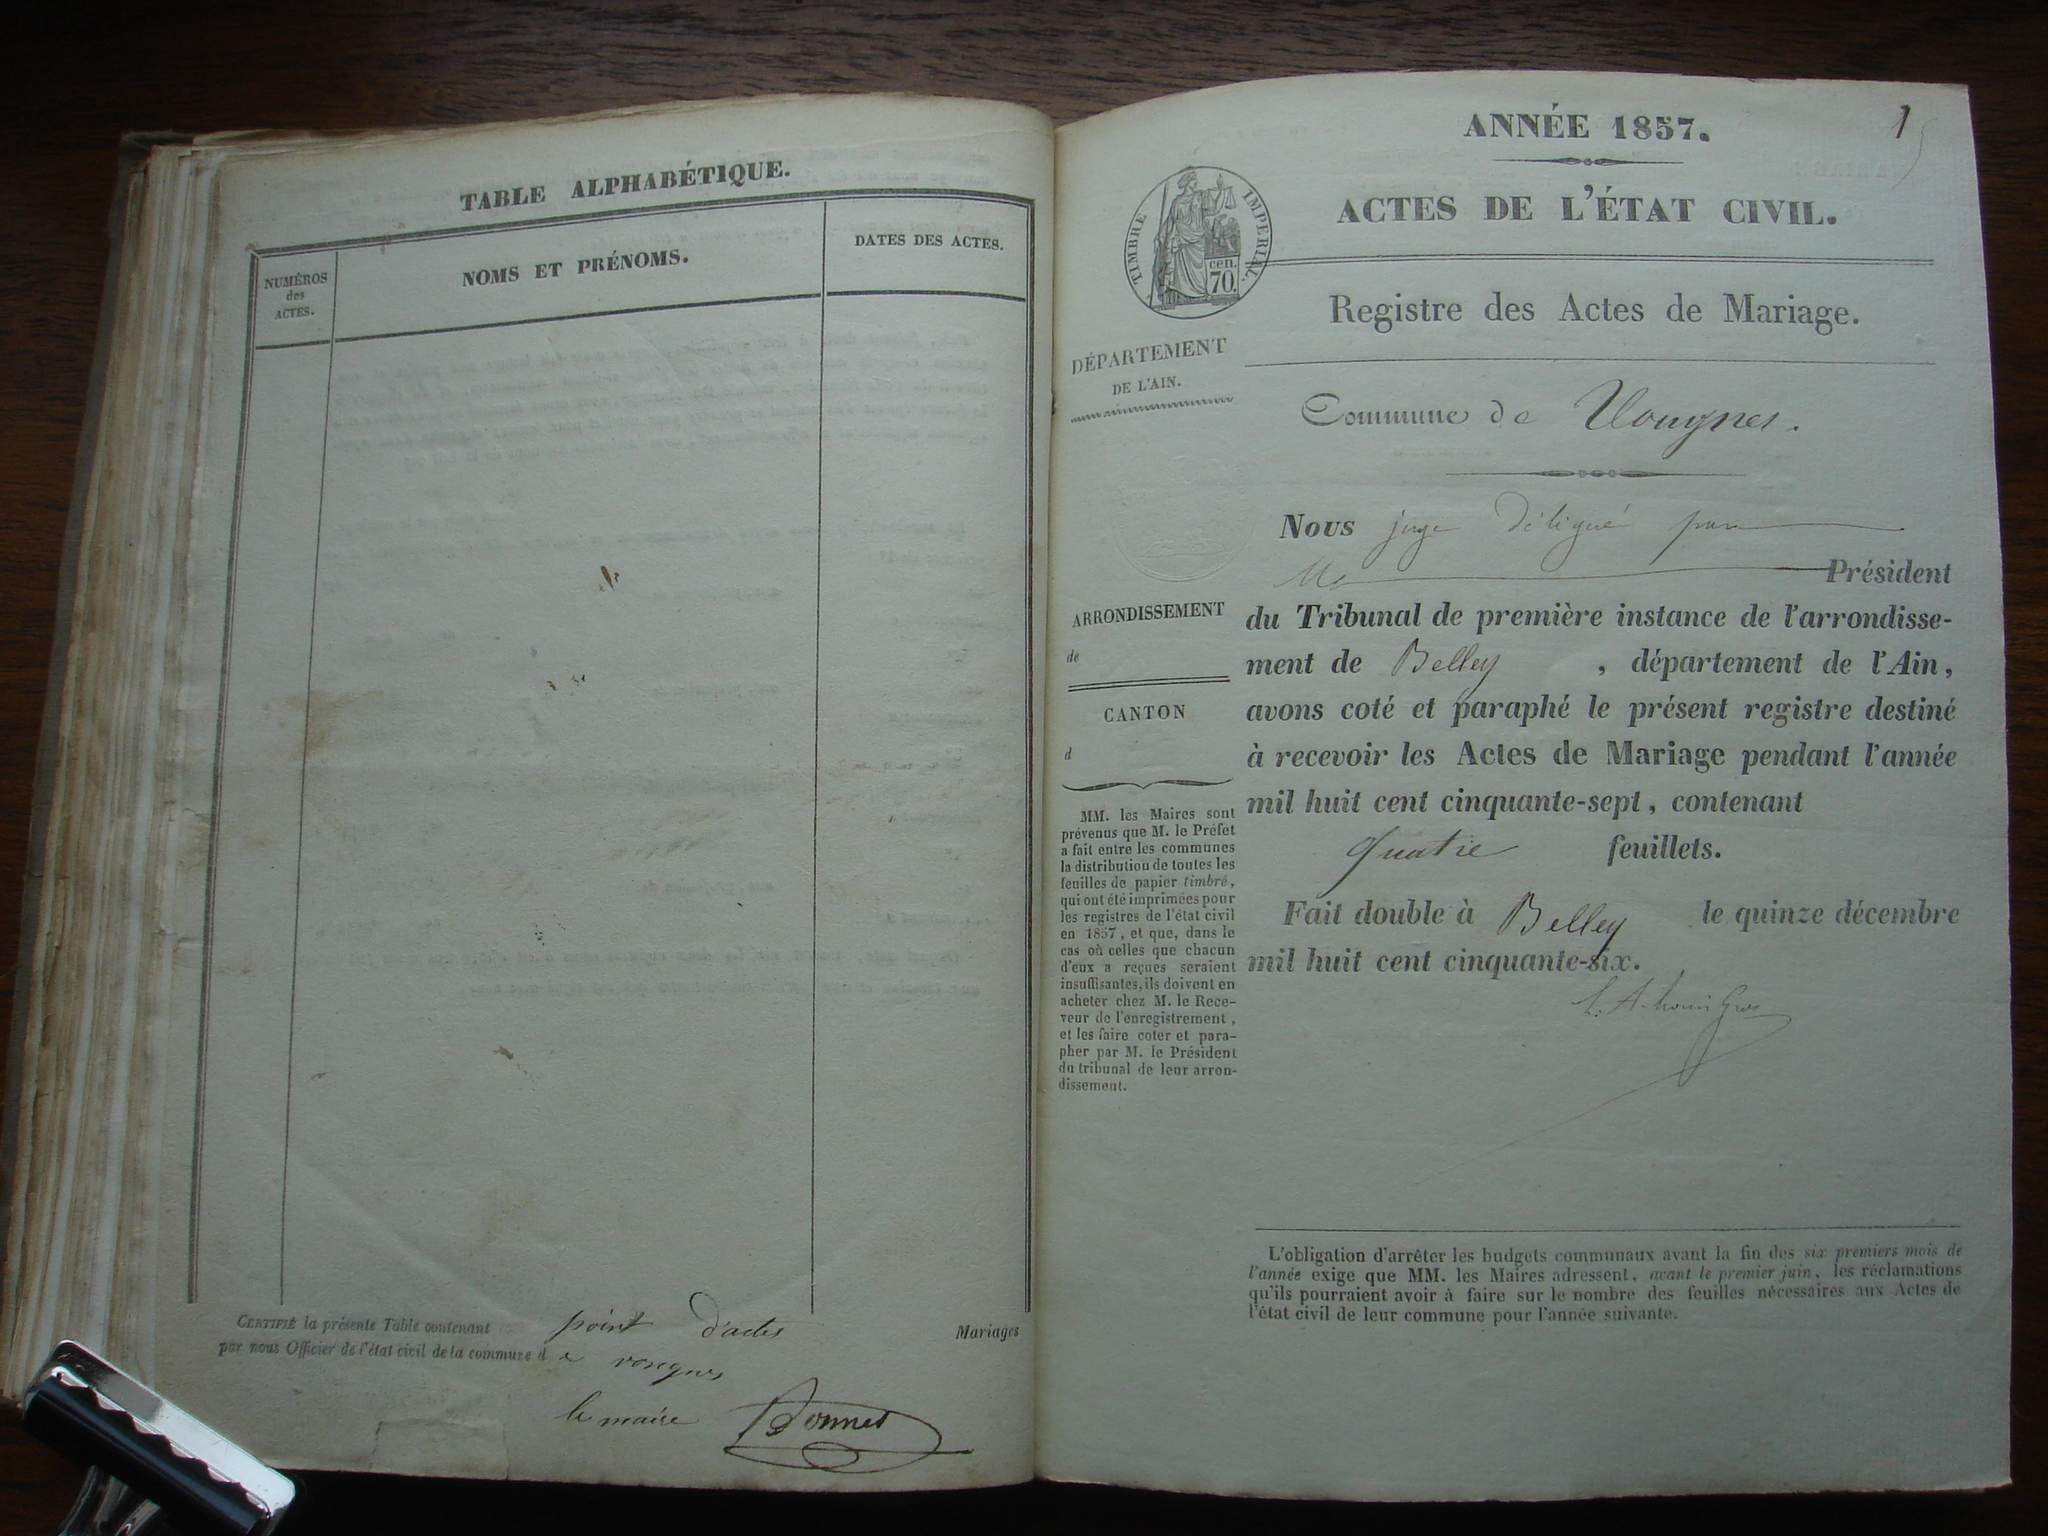 TABLE ALPHABÉTIQUE.
NUMÉROS
des
ACTES.
NOMS ET PRÉNOMS.
DATES DES ACTES.
CERTIFIÉ la présente Table contenant point d'actes Mariages
par nous Officier de l'état civil de la commune d e vongnes
le maire Bonnet
1
ANNÉE 1857.
ACTES DE L'ÉTAT CIVIL.
TIMBRE IMPERIAL.
cen.
70.
Registre des Actes de Mariage.
DÉPARTEMENT
DE L'AIN.
Commune de Vongnes.
Nous juge Délégué par
Mr Président
du Tribunal de première instance de l'arrondisse-
ment de Belley , département de l'Ain,
avons coté et paraphé le présent registre destiné
à recevoir les Actes de Mariage pendant l'année
mil huit cent cinquante-sept, contenant
quatre feuillets.
Fait double à Belley le quinze décembre
mil huit cent cinquante-six.
ARRONDISSEMENT
de
CANTON
d
MM. les Maires sont
prévenus que M. le Préfet
a fait entre les communes
la distribution de toutes les
feuilles de papier timbré,
qui ont été imprimées pour
les registres de l'état civil
en 1857, et que, dans le
cas où celles que chacun
d'eux a reçues seraient
insuffisantes, ils doivent en
acheter chez M. le Rece-
veur de l'enregistrement,
et les faire coter et para-
pher par M. le Président
du tribunal de leur arron-
dissement.
L'obligation d'arrêter les budgets communaux avant la fin des six premiers mois de
l'année exige que MM. les Maires adressent, avant le premier juin, les réclamations
qu'ils pourraient avoir à faire sur le nombre des feuilles nécessaires aux Actes de
l'état civil de leur commune pour l'année suivante.